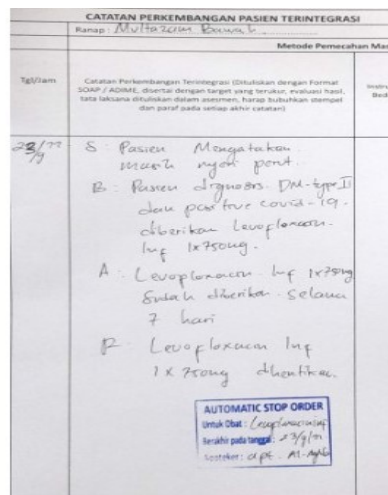 CATATAN PERKEMBANGAN PASIEN TERINTEGRASI
Ranap : Multazam Bawah
Metode Pemecahan Mas
Tgl/Jam
Catatan Perkembangan Terintegrasi (Dituliskan dengan Format
SOAP / ADIME, disertai dengan target yang terukur, evaluasi hasil,
tata laksana dituliskan dalam asesmen, harap bubuhkan stempel
dan paraf pada setiap akhir catatan)
Instru
Bed
S : Pasien Mengatakan
masih nyeri perut.
B : Pasien diagnosis DM-type II
dan positive covid-19.
diberikan Levofloxacin
Inf 1x750mg.
A : Levofloxacin Inf 1x750mg
Sudah diberikan selama
7 hari
R : Levofloxacin Inf
1 x 750mg dihentikan.
AUTOMATIC STOP ORDER
Untuk Obat : Levofloxacin inf
Berakhir pada tanggal :
Apoteker : apt.